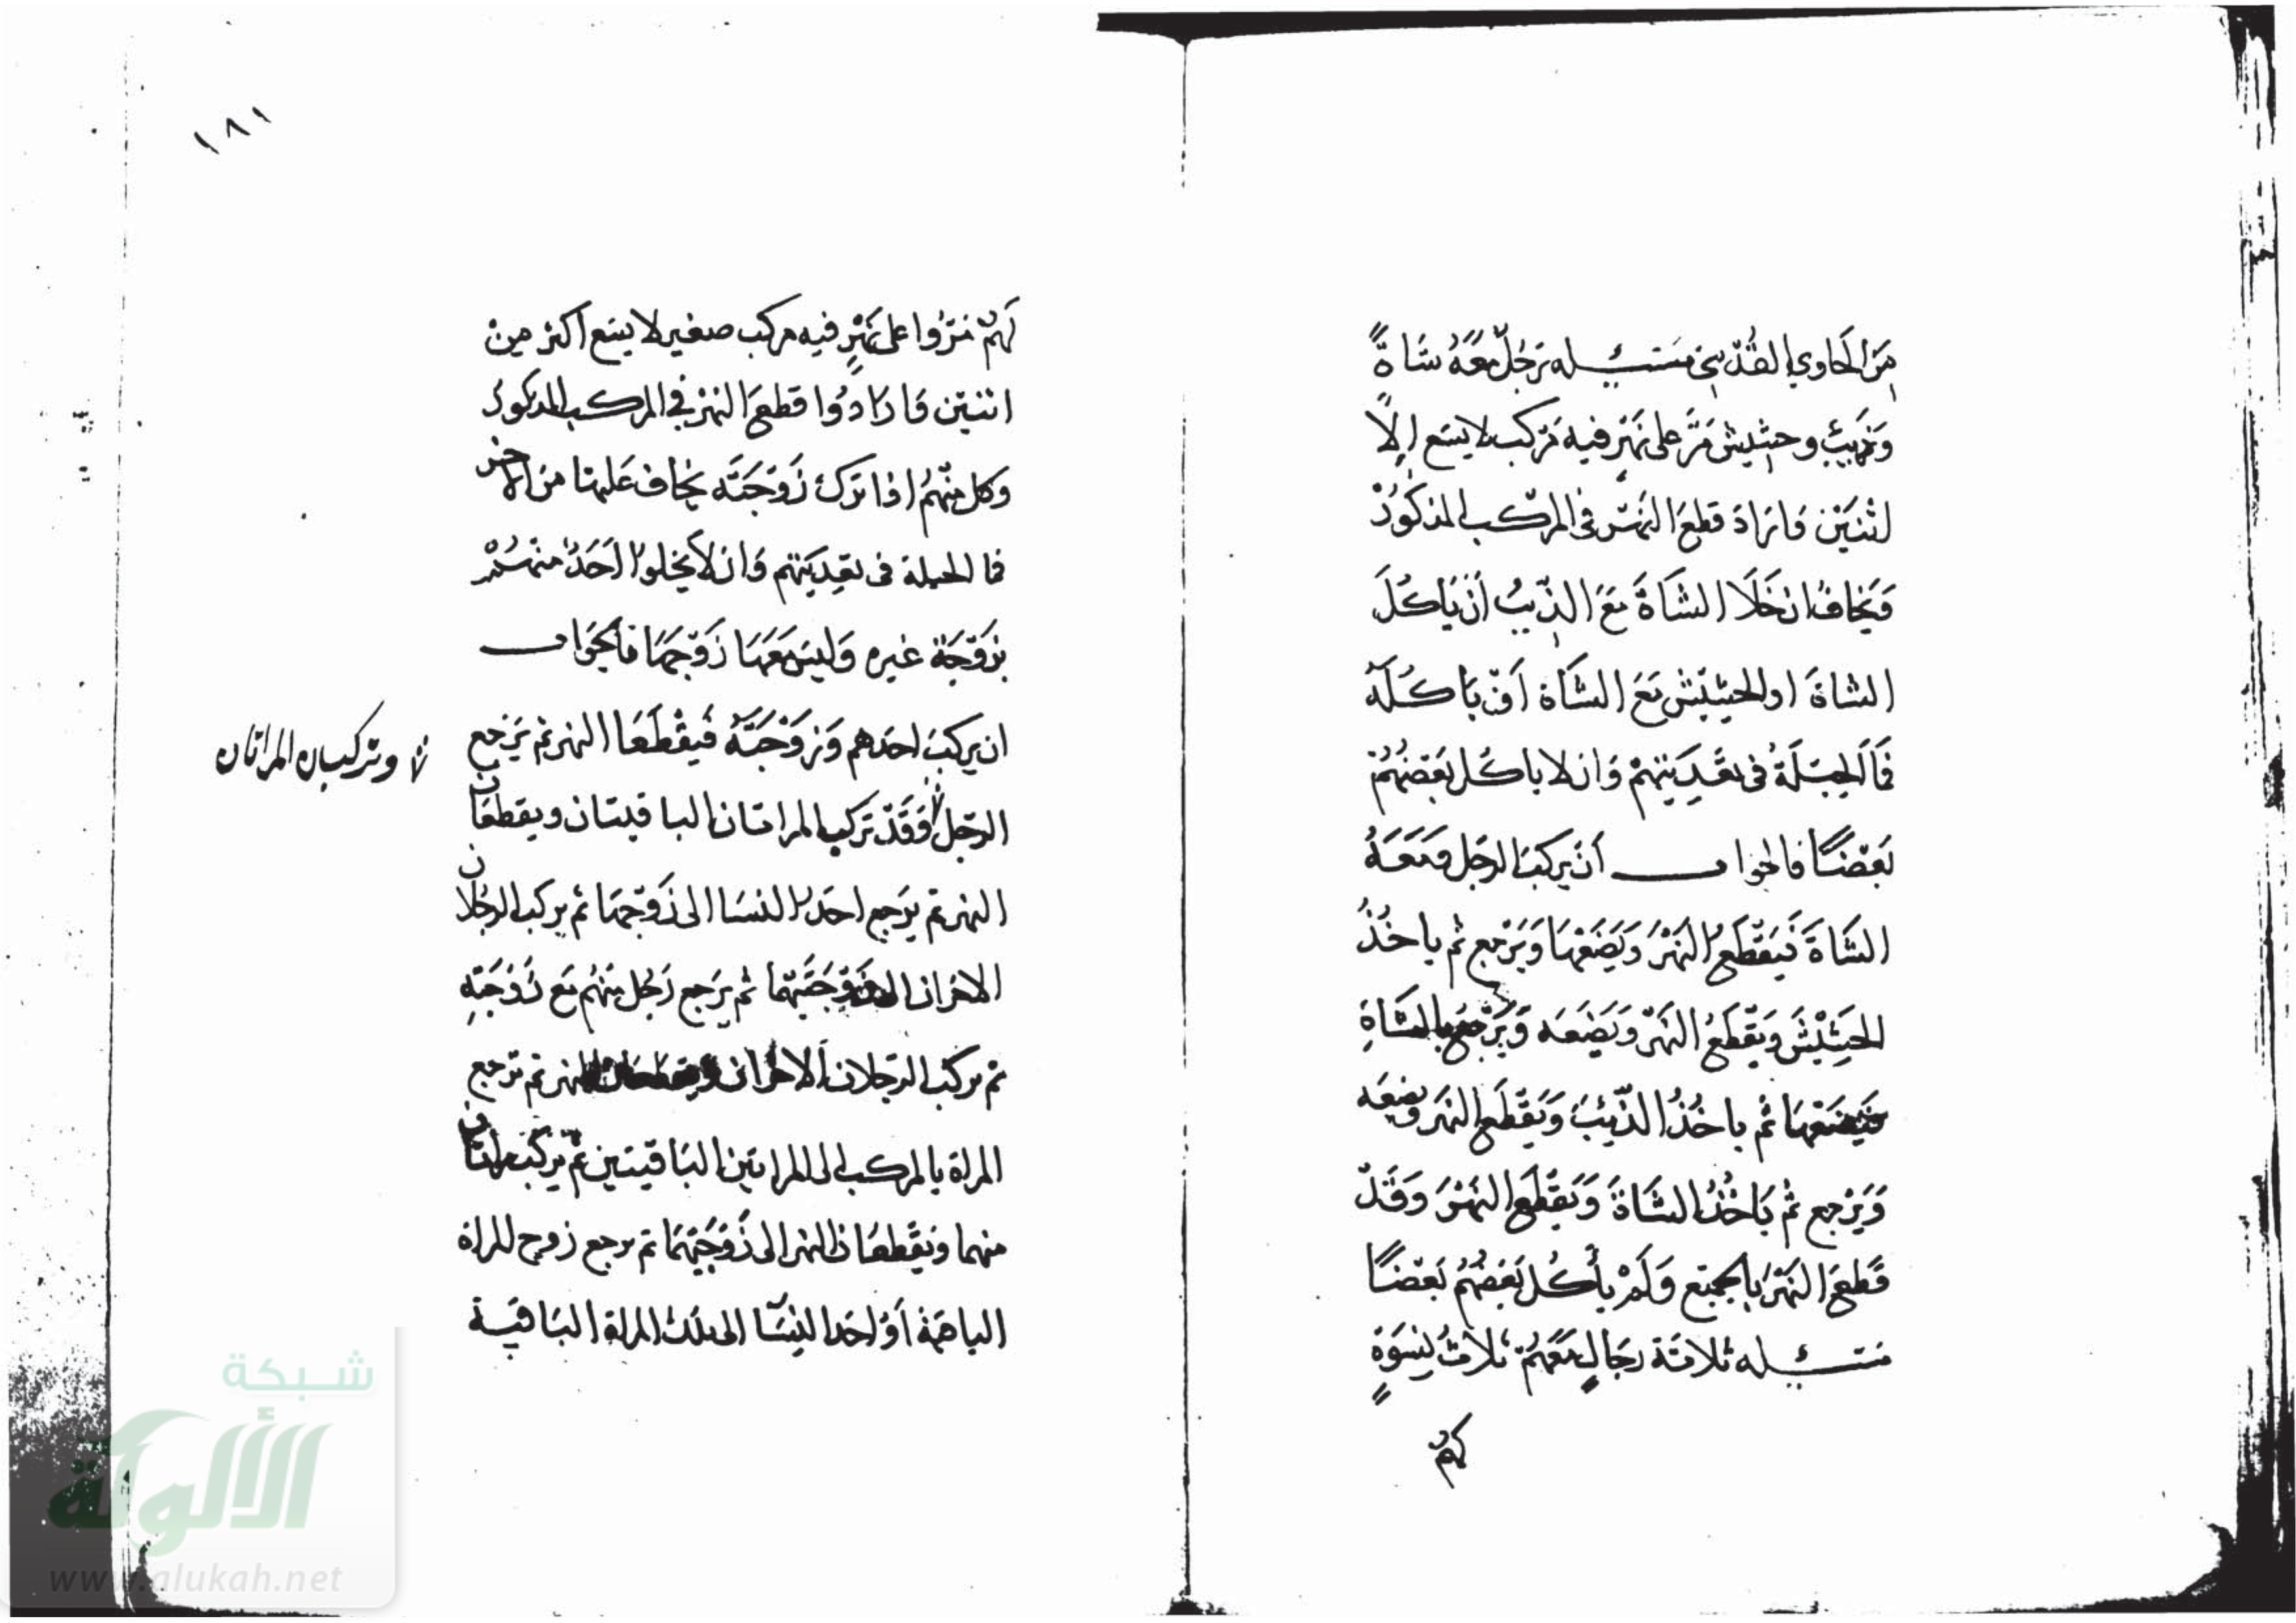 من الحاوي القدسي مسئله رجل معه شاةً
وذيب وحشيش مر على نهر فيه مركب لا يسع الا
لثنين فاراد قطع النهر في المركب المذكور
ويخاف ان خلا الشاة مع الذيب ان ياكل
الشاة او الحشيش مع الشاة ان تاكله
فما الحيلة في تعديتهم وان لا ياكل بعضهم
بعضًا فالجواب ان يركب الرجل ومعه
الشاة فيقطع النهر ويضعها ويرجع ثم ياخذ
الحشيش ويقطع النهر ويضعه ويرجع بالشاة
فيضعها ثم ياخذ الذيب ويقطع النهر ويضعه
ويرجع ثم ياخذ الشاة ويقطع النهر وقد
قطع النهر بالجميع ولم يأكل بعضهم بعضًا
مسئله ثلاثة رجالٍ معهم ثلاث نسوةٍ
لهم
١٨١
لهم مروا على نهرٍ فيه مركب صغير لا يسع اكثر من
اثنين فارادوا قطع النهر في المركب المذكور
وكل منهم اذا ترك زوجته يخاف عليها من الاخر
فما الحيلة في تعديتهم وان لا يخلوا احد منهم
بزوجة غيره وليس معها زوجها فالجواب
ان يركب احدهم وزوجته فيقطعا النهر ثم يرجع
وتركبان المراتان
الرجل وقد تركب المراتان الباقيتان ويقطعان
النهر ثم يرجع احد النسا الى زوجها ثم يركب الرجلان
الاخران الى زوجتيهما ثم يرجع رجل منهم مع زوجته
ثم يركب الرجلان الاخران النهر ثم ترجع
المراة بالمركب الى المراتين الباقيتين ثم يركب
منهما ويقطعان النهر الى زوجتهما ثم يرجع زوج المراة
الباقية او احد النسا الى تلك المراة الباقية
شبكة
الألوكة
www.alukah.net